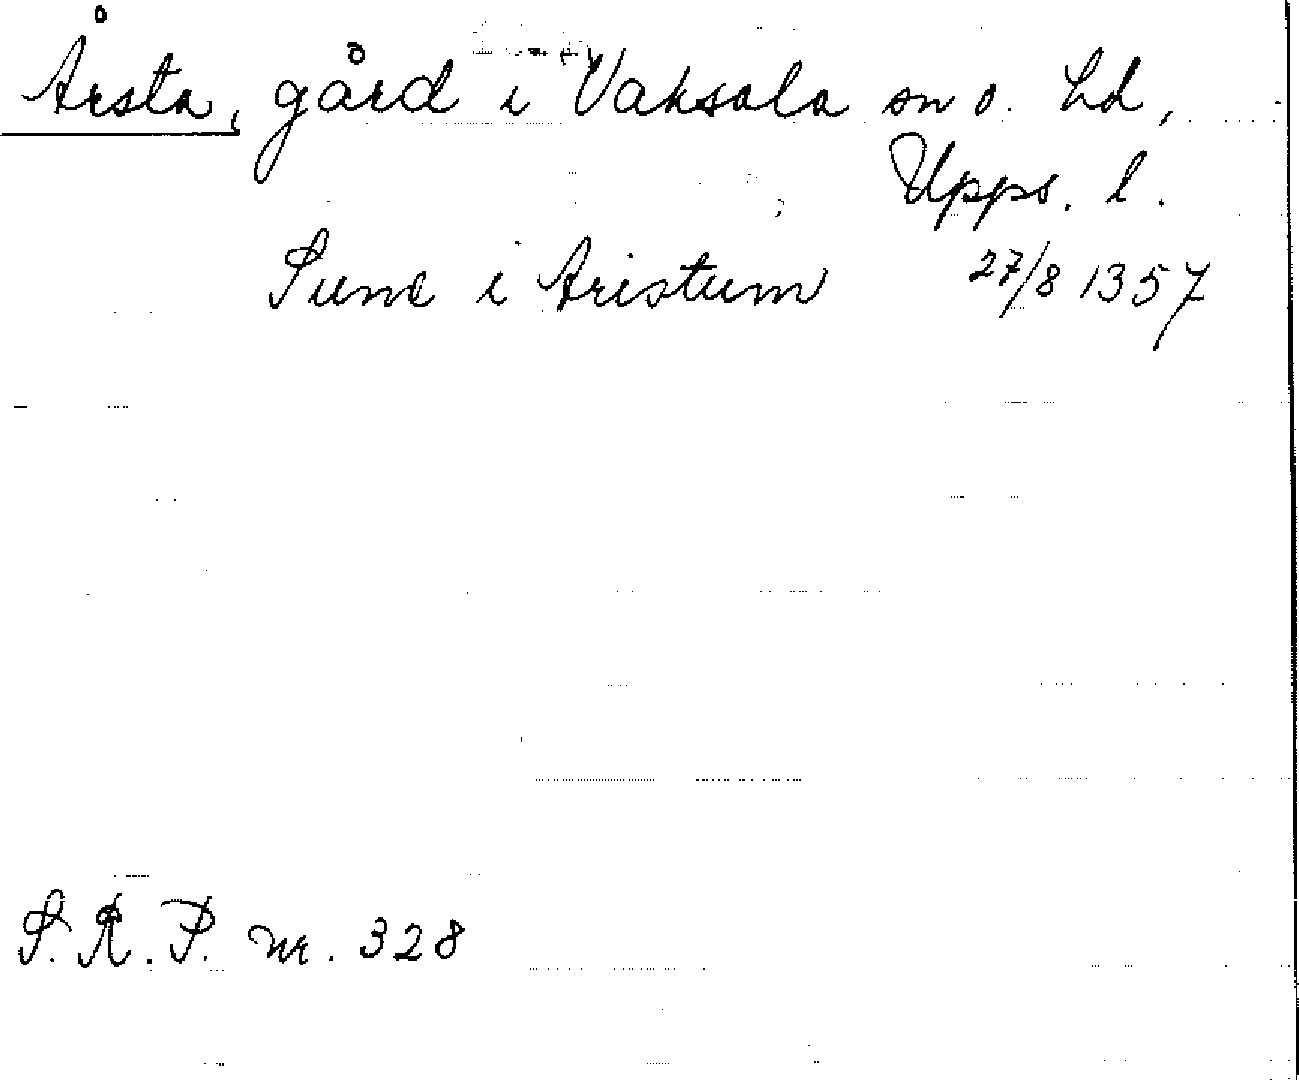 Årsta, gård i Vaksala sn o. hd,
Upps. l.
Sune i Aristum 27/8 1357
S.R.P. nr. 328